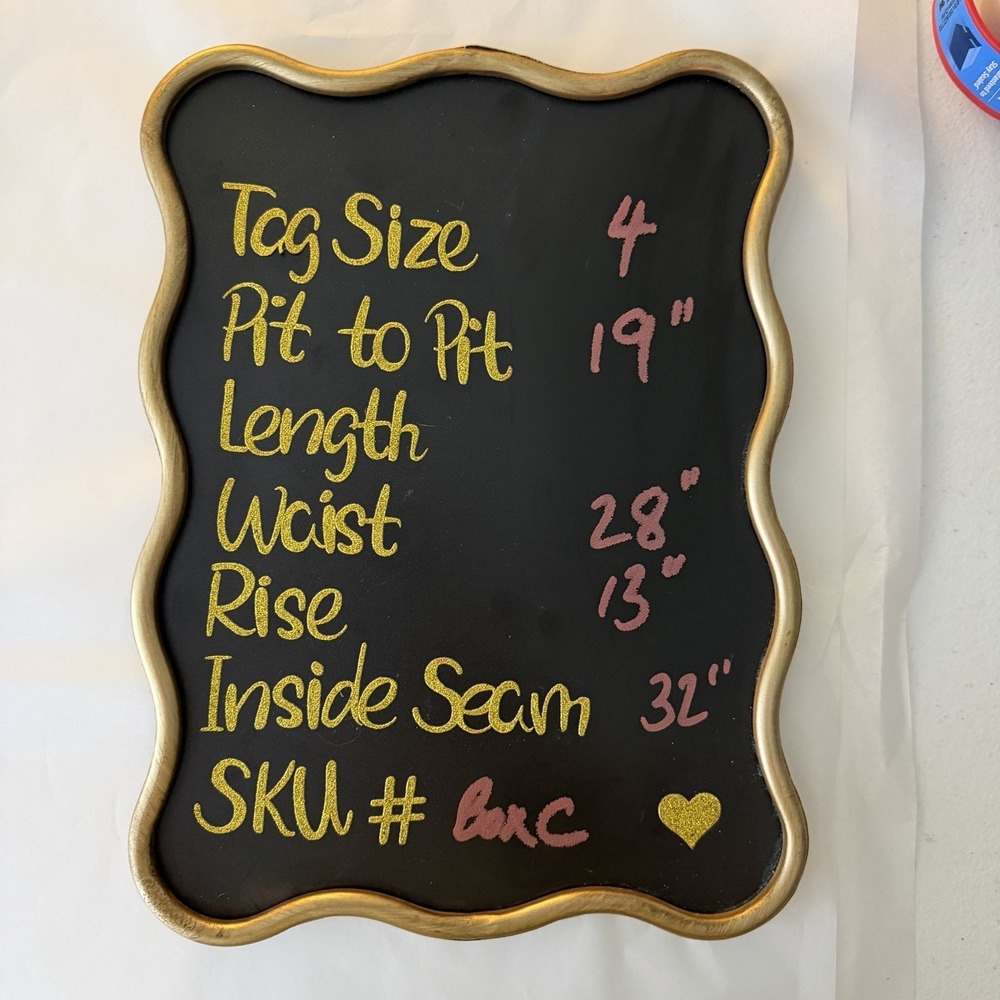 Tag Size 4
Pit to Pit 19"
Length
Waist 28"
Rise 13"
Inside Seam 32"
SKU # Box C
Stay Sealed